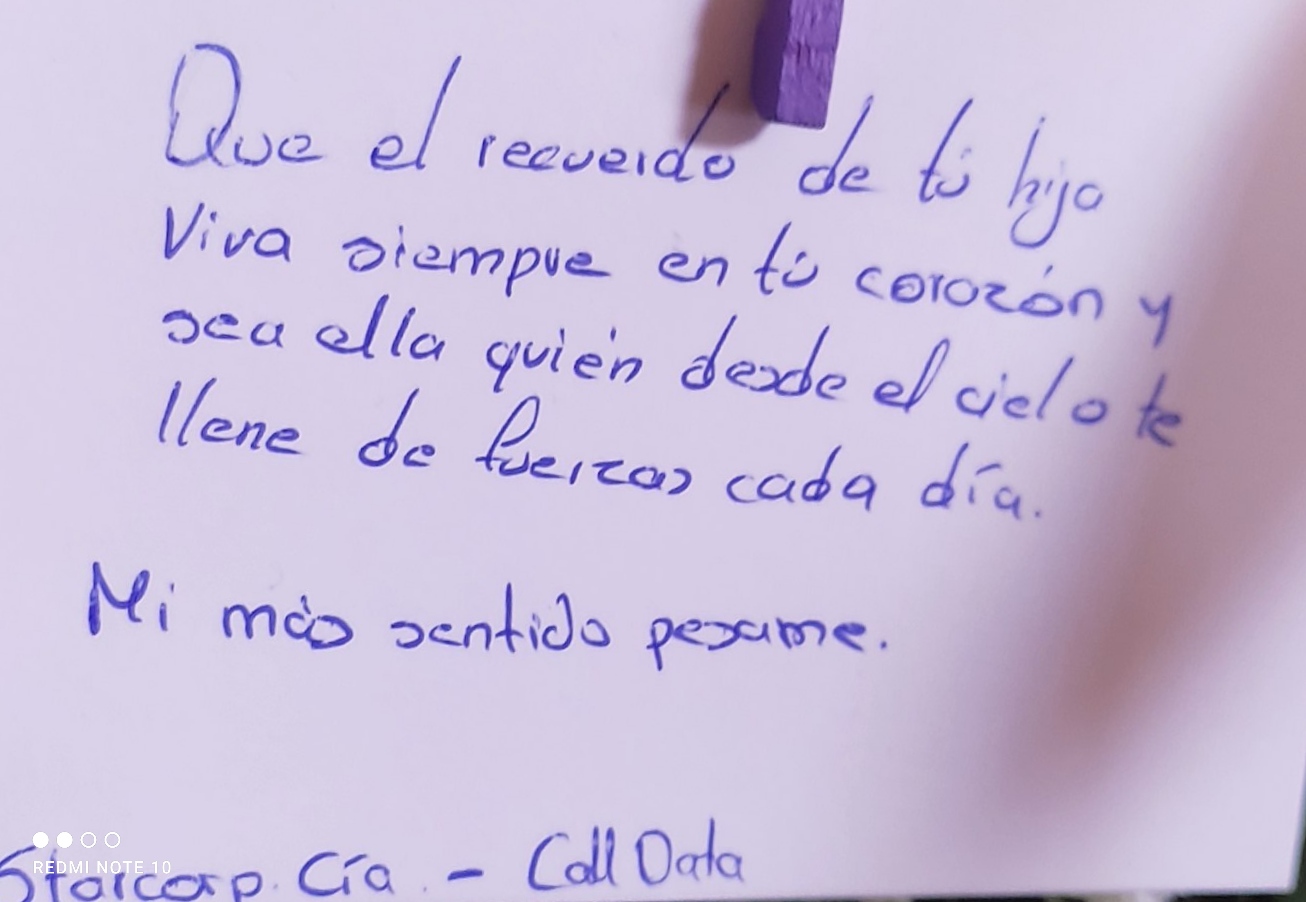 Que el recuerdo de tú hija
Viva siempre en tú corazón y
sea ella quién desde el cielo te
llene de fuerzas cada día.
Mi más sentido pesame.
Starcorp. Cía. - Call Data
REDMI NOTE 10